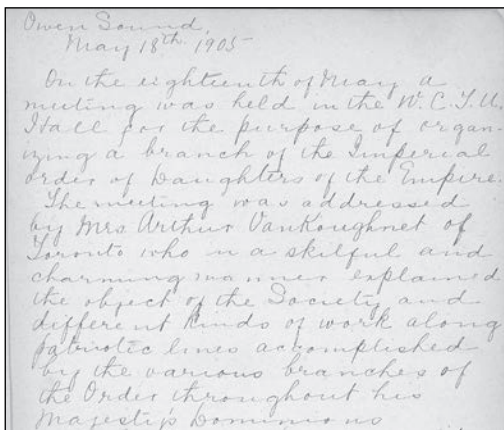 Owen Sound,
May 18th 1905
On the eighteenth of May a
meeting was held in the W. C. T. U.
Hall for the purpose of organ
izing a branch of the Imperial
order of Daughters of the Empire.
The meeting was addressed
by Mrs Arthur VanKoughnet of
Toronto who in a skilful and
charming manner explained
the object of the Society and
different kinds of work along
patriotic lines accomplished
by the various branches of
the Order throughout his
Majesty's Dominions